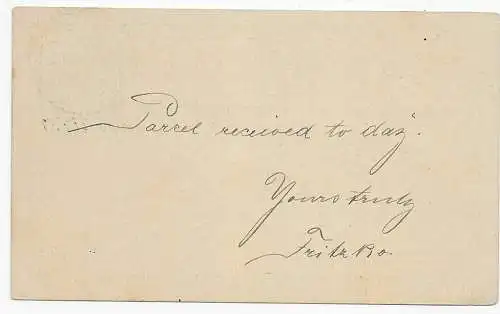 Parcel received to day.
Yours truly
Fritz Ko.